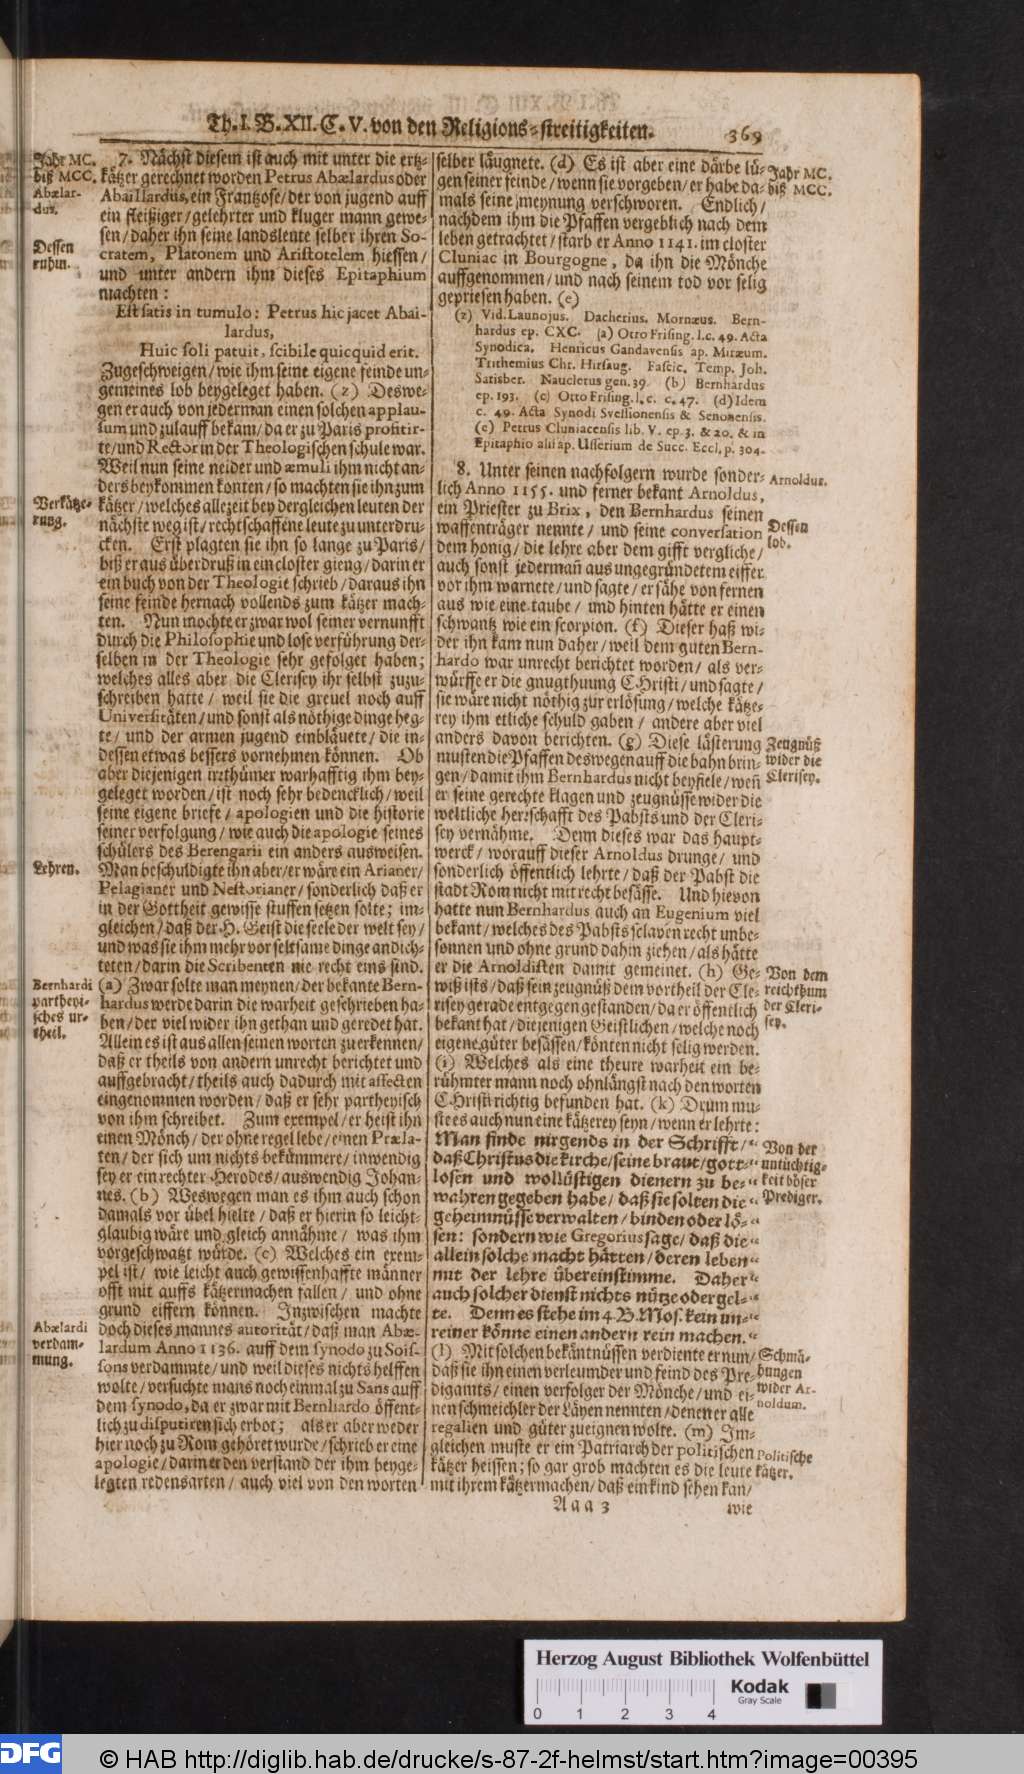 Th. I. B. XII. C. V. von den Religions-streitigkeiten. 369
Jahr MC.
biß MCC.
Abælar-
dus.
Dessen
ruhm.
Verkätze-
rung.
Lehren.
Bernhardi
partheyi-
sches ur-
theil.
Abælardi
verdam-
mung.
7. Nächst diesem ist auch mit unter die ertz-
kätzer gerechnet worden Petrus Abælardus oder
Abaillardus, ein Frantzose/ der von jugend auff
ein fleißiger/ gelehrter und kluger mann gewe-
sen/ daher ihn seine landsleute selber ihren So-
cratem, Platonem und Aristotelem hiessen/
und unter andern ihm dieses Epitaphium
machten:
Est satis in tumulo: Petrus hic jacet Abai-
lardus,
Huic soli patuit, scibile quicquid erit.
Zugeschweigen/ wie ihm seine eigene feinde un-
gemeines lob beygeleget haben. (z) Deswe-
gen er auch von jederman einen solchen applau-
sum und zulauff bekam/ da er zu Paris profitir-
te/ und Rector in der Theologischen schule war.
Weil nun seine neider und æmuli ihm nicht an-
ders beykommen konten/ so machten sie ihn zum
kätzer/ welches allezeit bey dergleichen leuten der
nächste weg ist/ rechtschaffene leute zu unterdru-
cken. Erst plagten sie ihn so lange zu Paris/
biß er aus überdruß in ein closter gieng/ darin er
ein buch von der Theologie schrieb/ daraus ihn
seine feinde hernach vollends zum kätzer mach-
ten. Nun mochte er zwar wol seiner vernunfft
durch die Philosophie und lose verführung der-
selben in der Theologie sehr gefolget haben;
welches alles aber die Clerisey ihr selbst zuzu-
schreiben hatte/ weil sie die greuel noch auff
Universitäten/ und sonst als nöthige dinge heg-
te/ und der armen jugend einbläuete/ die in-
dessen etwas bessers vornehmen können. Ob
aber diejenigen irrthümer warhafftig ihm bey-
geleget worden/ ist noch sehr bedencklich/ weil
seine eigene briefe/ apologien und die historie
seiner verfolgung/ wie auch die apologie seines
schülers des Berengarii ein anders ausweisen.
Man beschuldigte ihn aber/ er wäre ein Arianer/
Pelagianer und Nestorianer/ sonderlich daß er
in der Gottheit gewisse stuffen setzen solte; im-
gleichen/ daß der H. Geist die seele der welt sey/
und was sie ihm mehr vor seltsame dinge andich-
teten/ darin die Scribenten nie recht eins sind.
(a) Zwar solte man meynen/ der bekante Bern-
hardus werde darin die warheit geschrieben ha-
ben/ der viel wider ihn gethan und geredet hat.
Allein es ist aus allen seinen worten zu erkennen/
daß er theils von andern unrecht berichtet und
auffgebracht/ theils auch dadurch mit affecten
eingenommen worden/ daß er sehr partheyisch
von ihm schreibet. Zum exempel/ er heist ihn
einen Mönch/ der ohne regel lebe/ einen Præla-
ten/ der sich um nichts bekümmere/ inwendig
sey er ein rechter Herodes/ auswendig Johan-
nes. (b) Weswegen man es ihm auch schon
damals vor übel hielte/ daß er hierin so leicht-
glaubig wäre und gleich annähme/ was ihm
vorgeschwatzt würde. (c) Welches ein exem-
pel ist/ wie leicht auch gewissenhaffte männer
offt mit auffs kätzermachen fallen/ und ohne
grund eiffern können. Inzwischen machte
doch dieses mannes autorität/ daß man Abæ-
lardum Anno 1136. auff dem synodo zu Sois-
sons verdammte/ und weil dieses nichts helffen
wolte/ versuchte mans noch einmal zu Sans auff
dem synodo, da er zwar mit Bernhardo öffent-
lich zu disputiren sich erbot; als er aber weder
hier noch zu Rom gehöret wurde/ schrieb er eine
apologie/ darin er den verstand der ihm beyge-
legten redensarten/ auch viel von den worten
selber läugnete. (d) Es ist aber eine därbe lü-
gen seiner feinde/ wenn sie vorgeben/ er habe da-
mals seine meynung verschworen. Endlich/
nachdem ihm die Pfaffen vergeblich nach dem
leben getrachtet/ starb er Anno 1141. im closter
Cluniac in Bourgogne, da ihn die Mönche
auffgenommen/ und nach seinem tod vor selig
gepriesen haben. (e)
(z) Vid. Launojus. Dacherius. Mornæus. Bern-
hardus ep. CXC. (a) Otto Frising. l. c. 49. Acta
Synodica. Henricus Gandavensis ap. Miræum.
Trithemius Chr. Hirsaug. Fascic. Temp. Joh.
Sarisber. Nauclerus gen. 39. (b) Bernhardus
ep. 193. (c) Otto Frising. l. c. c. 47. (d) Idem
c. 49. Acta Synodi Svessionensis & Senonensis.
(e) Petrus Cluniacensis lib. V. ep. 3. & 20. & in
Epitaphio alii ap. Usserium de Succ. Eccl. p. 304.
8. Unter seinen nachfolgern wurde sonder-
lich Anno 1155. und ferner bekant Arnoldus,
ein Priester zu Brix, den Bernhardus seinen
waffenträger nennte/ und seine conversation
dem honig/ die lehre aber dem gifft vergliche/
auch sonst jederman̄ aus ungegründetem eiffer
vor ihm warnete/ und sagte/ er sähe von fernen
aus wie eine taube/ und hinten hätte er einen
schwantz wie ein scorpion. (f) Dieser haß wi-
der ihn kam nun daher/ weil dem guten Bern-
hardo war unrecht berichtet worden/ als ver-
würffe er die gnugthuung CHristi/ und sagte/
sie wäre nicht nöthig zur erlösung/ welche kätze-
rey ihm etliche schuld gaben/ andere aber viel
anders davon berichten. (g) Diese lästerung
musten die Pfaffen deswegen auff die bahn brin-
gen/ damit ihm Bernhardus nicht beyfiele/ wen̄
er seine gerechte klagen und zeugnüsse wider die
weltliche herrschafft des Pabsts und der Cleri-
sey vernähme. Denn dieses war das haupt-
werck/ worauff dieser Arnoldus drunge/ und
sonderlich öffentlich lehrte/ daß der Pabst die
stadt Rom nicht mit recht besässe. Und hievon
hatte nun Bernhardus auch an Eugenium viel
bekant/ welches des Pabsts sclaven recht unbe-
sonnen und ohne grund dahin ziehen/ als hätte
er die Arnoldisten damit gemeinet. (h) Ge-
wiß ists/ daß sein zeugnüß dem vortheil der Cle-
risey gerade entgegen gestanden/ da er öffentlich
bekant hat/ diejenigen Geistlichen/ welche noch
eigene güter besässen/ könten nicht selig werden.
(i) Welches als eine theure warheit ein be-
rühmter mann noch ohnlängst nach den worten
CHristi richtig befunden hat. (k) Drum mu-
ste es auch nun eine kätzerey seyn/ wenn er lehrte:
Man finde nirgends in der Schrifft/ “
daß Christus die kirche/ seine braut/ gott- “
losen und wollüstigen dienern zu be- “
wahren gegeben habe/ daß sie solten die “
geheimnüsse verwalten/ binden oder lö- “
sen: sondern wie Gregorius sage/ daß die “
allein solche macht hätten/ deren leben “
mit der lehre übereinstimme. Daher “
auch solcher dienst nichts nütze oder gel- “
te. Denn es stehe im 4. B. Mos. kein un- “
reiner könne einen andern rein machen. “
(l) Mit solchen bekäntnüssen verdiente er nun/
daß sie ihn einen verleumder und feind des Pre-
digamts/ einen verfolger der Mönche/ und ei-
nen schmeichler der Läyen nennten/ denen er alle
regalien und güter zueignen wolte. (m) Im-
gleichen muste er ein Patriarch der politischen
kätzer heissen; so gar grob machten es die leute
mit ihrem kätzermachen/ daß ein kind sehen kan/
Aaa 3 wie
Jahr MC.
biß MCC.
Arnoldus.
Dessen
lob.
Zeugnüß
wider die
Clerisey.
Von dem
reichthum
der Cleri-
sey.
Von der
untüchtig-
keit böser
Prediger.
Schmä-
hungen
wider Ar-
noldum.
Politische
kätzer.
Herzog August Bibliothek Wolfenbüttel
Kodak
Gray Scale
0 1 2 3 4
DFG © HAB http://diglib.hab.de/drucke/s-87-2f-helmst/start.htm?image=00395